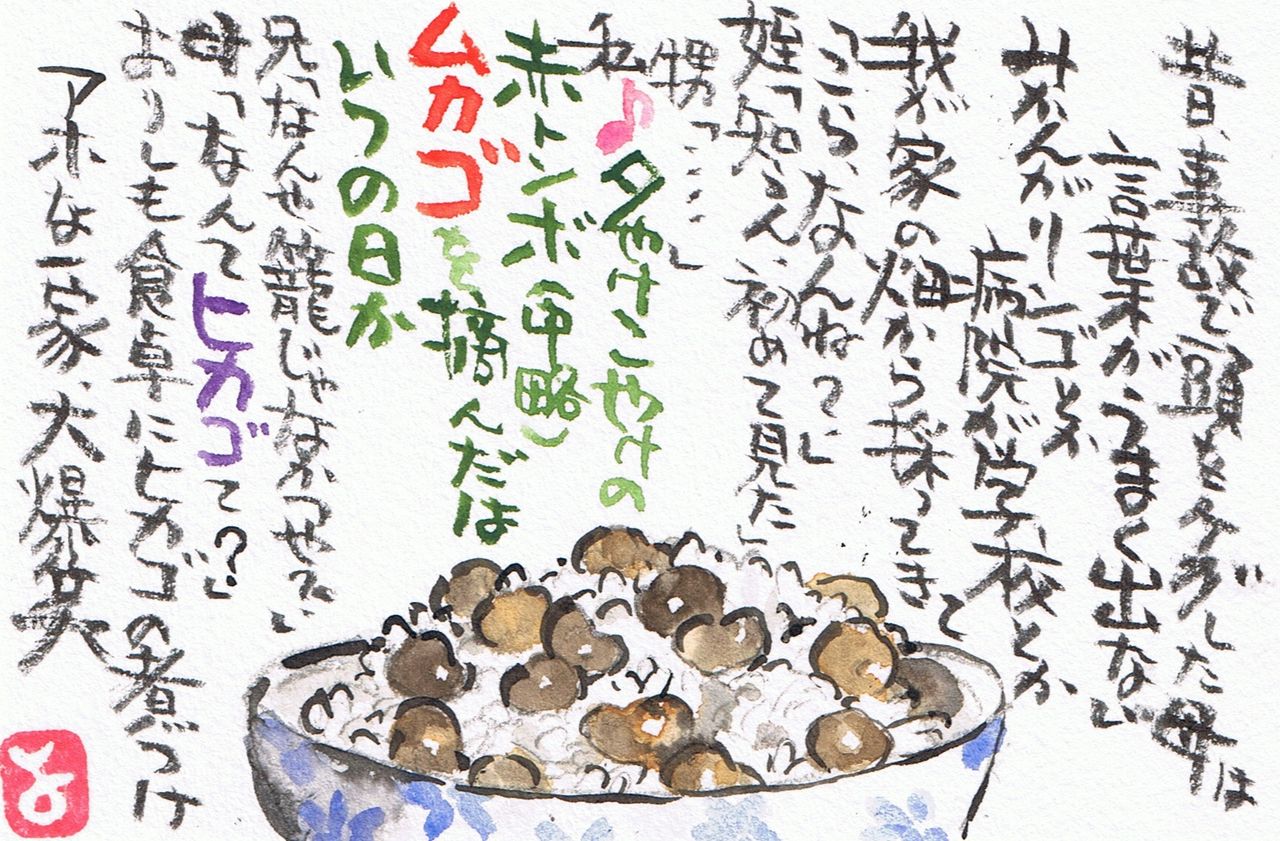 昔、事故で頭をケガした母は
言葉がうまく出ない
みかんがリンゴとか
病院が学校とか
我が家の畑から採ってきて
「こら、なんねって」
姪「知らん、初めて見た」
甥「・・・・」
私♪夕やけこやけの
赤トンボ(中略)
ムカゴを摘んだは
いつの日か
兄「なんせ籠じゃなかっせ
母「なんてヒカゴて?」
おりしも食卓にヒカゴの煮づけ
アホな一家、大爆笑